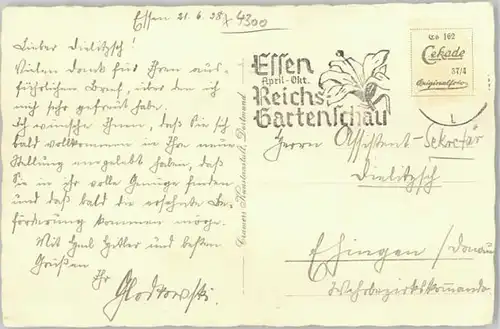 Essen 21.6.38
4300
Lieber Dielitzsch!
Vielen Dank für Ihren aus-
führlichen Brief, über den ich
mich sehr gefreut habe.
Ich wünsche Ihnen, daß Sie sich
bald vollkommen in Ihre neue
Stellung eingelebt haben, daß
Sie in ihr volle Genüge finden
und daß bald die ersehnte Be-
förderung kommen möge.
Mit Heil Hitler und besten
Grüßen
Ihr
Glodkowski.
Cramers Kunstanstalt, Dortmund
Essen
April-Okt.
Reichs
Gartenschau
Co 162
Cekade
57/4
Originalfoto
Herrn Assistent-Sekretär
Dielitzsch
Ehingen / Donau
Wehrbezirkskommando